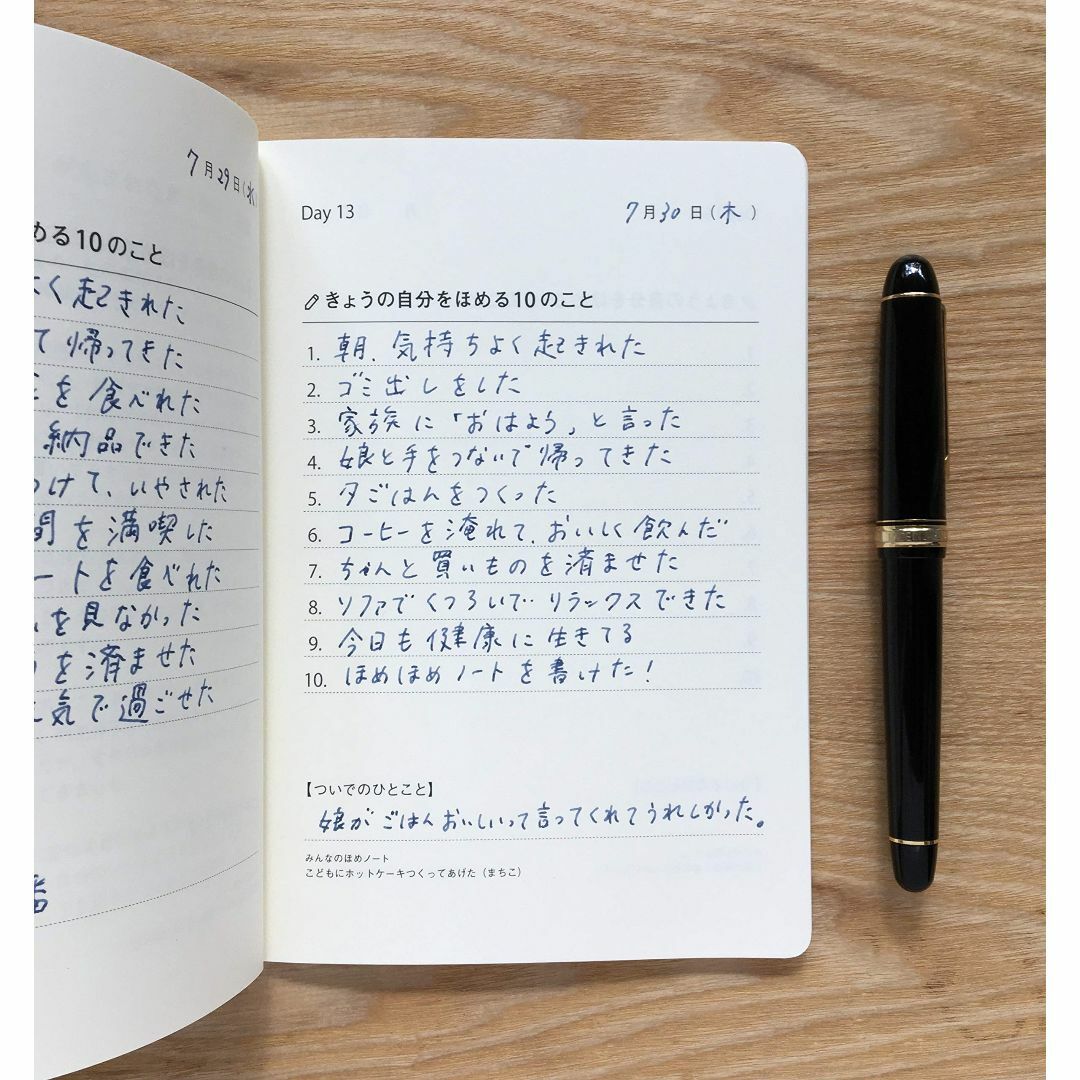 7月29日(水)
める10のこと
よく起きれた
て帰ってきた
を食べれた
納品できた
つけて、いやされた
間を満喫した
ートを食べれた
を見なかった
を済ませた
気で過ごせた
Day 13
7月30日(木)
きょうの自分をほめる10のこと
1. 朝、気持ちよく起きれた
2. ゴミ出しをした
3. 家族に「おはよう」と言った
4. 娘と手をつないで帰ってきた
5. 夕ごはんをつくった
6. コーヒーを淹れて、おいしく飲んだ
7. ちゃんと買いものを済ませた
8. ソファでくつろいで リラックスできた
9. 今日も健康に生きてる
10. ほめほめノートを書けた!
【ついでのひとこと】
娘がごはんおいしいって言ってくれてうれしかった。
みんなのほめノート
こどもにホットケーキつくってあげた(まちこ)